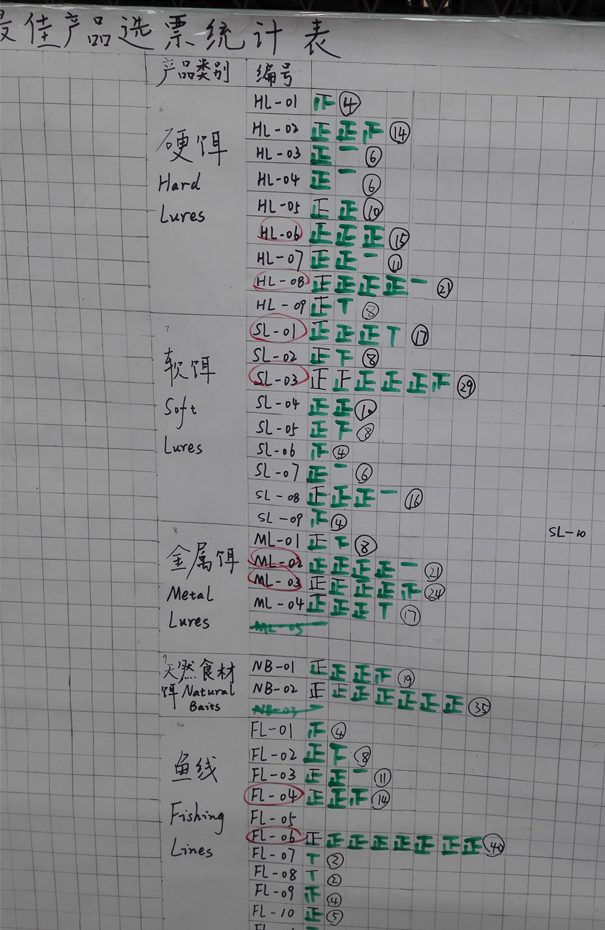 最佳产品选票统计表
产品类别 编号
硬饵
Hard
Lures
HL-01 ④
HL-02 正正 ⑭
HL-03 正一 ⑥
HL-04 正一 ⑥
HL-05 正正 ⑩
HL-06 正正正 ⑮
HL-07 正正一 ⑪
HL-08 正正正正一 ㉑
HL-09 正 ⑧
软饵
Soft
Lures
SL-01 正正正 ⑰
SL-02 正 ⑧
SL-03 正正正正正 ㉙
SL-04 正正 ⑩
SL-05 正 ⑧
SL-06 ④
SL-07 正一 ⑥
SL-08 正正正一 ⑯
SL-09 ④
SL-10
金属饵
Metal
Lures
ML-01 正 ⑧
ML-02 正正正正一 ㉑
ML-03 正正正正 ㉔
ML-04 正正正 ⑰
ML-05
天然食材
饵 Natural
Baits
NB-01 正正正 ⑲
NB-02 正正正正正正正 ㉟
NB-03
鱼线
Fishing
Lines
FL-01 ④
FL-02 正 ⑧
FL-03 正正一 ⑪
FL-04 正正 ⑭
FL-05
FL-06 正正正正正正正正 ㊵
FL-07 ②
FL-08 ②
FL-09 ④
FL-10 正 ⑤